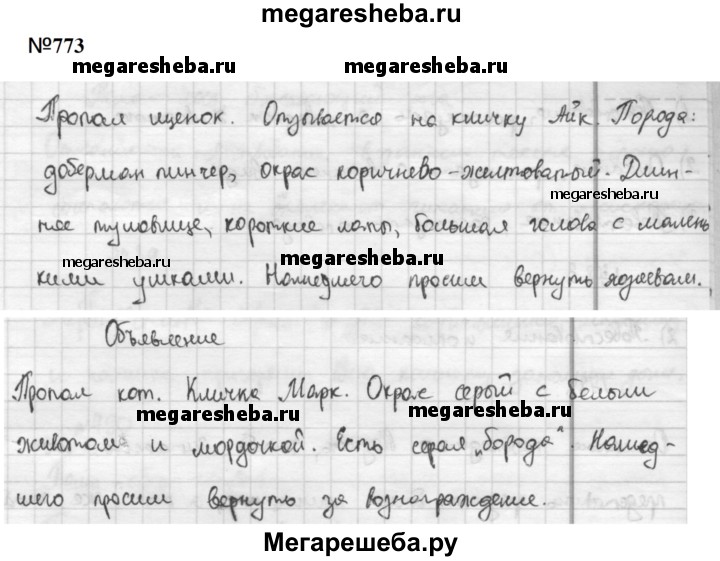 megaresheba.ru
№773
megaresheba.ru megaresheba.ru
Пропал щенок. Отзывается на кличку Айк. Порода:
доберман пинчер, окрас коричнево-желтоватый. Длин-
megaresheba.ru
ное туловище, короткие лапы, большая голова с малень
megaresheba.ru megaresheba.ru
кими ушками. Нашедшего просим вернуть хозяевам.
Объявление
Пропал кот. Кличка Марк. Окрас серый с белым
megaresheba.ru megaresheba.ru
животом и мордочкой. Есть серая „борода". Нашед-
megaresheba.ru megaresheba.ru
шего просим вернуть за вознаграждение.
Мегарешеба.ру